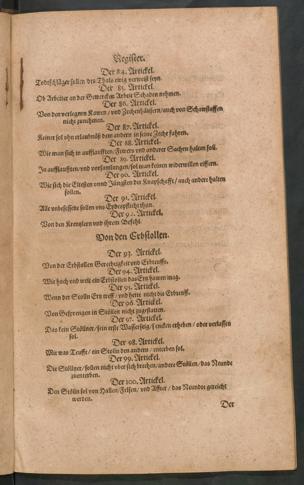 Register.
Der 84. Artickel.
Todtschläger sollen des Thals ewig verweist seyn.
Der 85. Artickel.
Ob Arbeiter an der Gewercken Arbeit Schaden nehmen.
Der 86. Artickel.
Von den verlegnen Kawen / vnd Zechenhäusern / auch von
nicht zunehmen.
Der 87. Artickel.
Keiner sol ohn erlaubnüß dem andern in seine Zeche fahren.
Der 88. Artickel.
Wie man sich in aufflaufften / Fewers vnd anderer Sachen halten sol.
Der 89. Artickel.
In aufflaufften / vnd versamlungen / sol man keinen widerwillen eiffern.
Der 90. Artickel.
Wie sich die Eltesten vnnd Jüngsten der Knapschafft / auch andere halten
sollen.
Der 91. Artickel.
Alle vnbesessene sollen
Der 92. Artickel.
Von den Kremplern vnd ihrem Befehl.
Von den Erbstollen.
Der 93. Artickel.
Von der Erbstollen Gerechtigkeit vnd Erbteuffe.
Der 94. Artickel.
Wie hoch vnd weit ein Erbstollen das Ertz hawen mag.
Der 95. Artickel.
Wenn der Stolln Ertz treff / vnd hette nicht die Erbteuff.
Der 96. Artickel.
Von Gesprengen in Stöllen nicht zugestatten.
Der 97. Artickel.
Das kein Stöllner / sein erste Wasserseig / trencken erheben / oder verlassen
sol.
Der 98. Artickel.
Mit was Teuffe / ein Stolln den andern / enterben sol.
Der 99. Artickel.
Die Stöllner / sollen nicht vber sich brechen / andere Stöllen / das Neunde
zuenterben.
Der 100. Artickel.
Den Stöln sol von Halten / Felsen / vnd Affter / das Neundte gereicht
werden.
Der